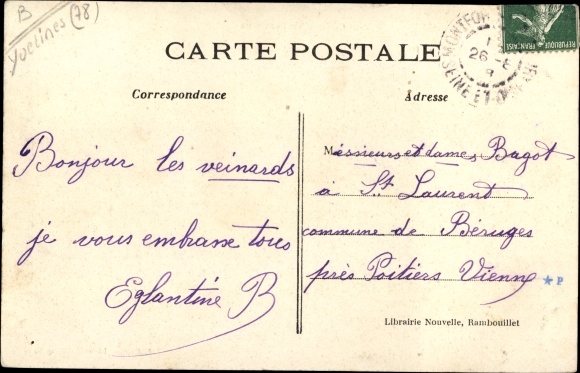 B
Yvelines (78)
CARTE POSTALE
Correspondance
Bonjour les veinards
je vous embrasse tous
Eglantine B
Adresse
Messieurs et dames Bagot
à St Laurent
commune de Béruges
près Poitiers Vienne
P
Librairie Nouvelle, Rambouillet
MONTFO
1
26 - 8
SEINE ET
REPUBLIQUE FRANÇAISE